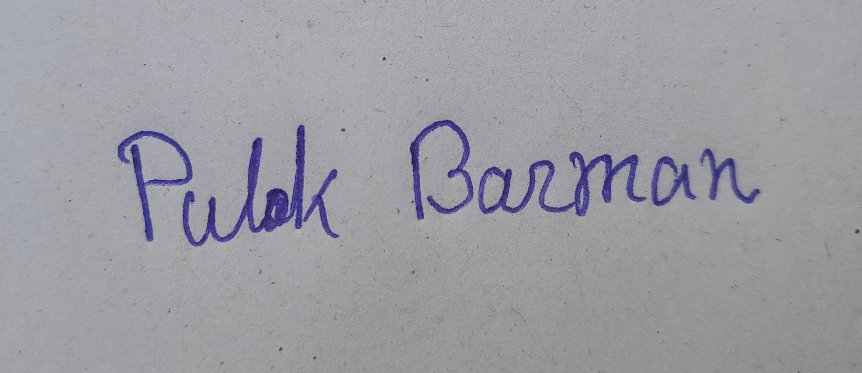 Pulok Barman